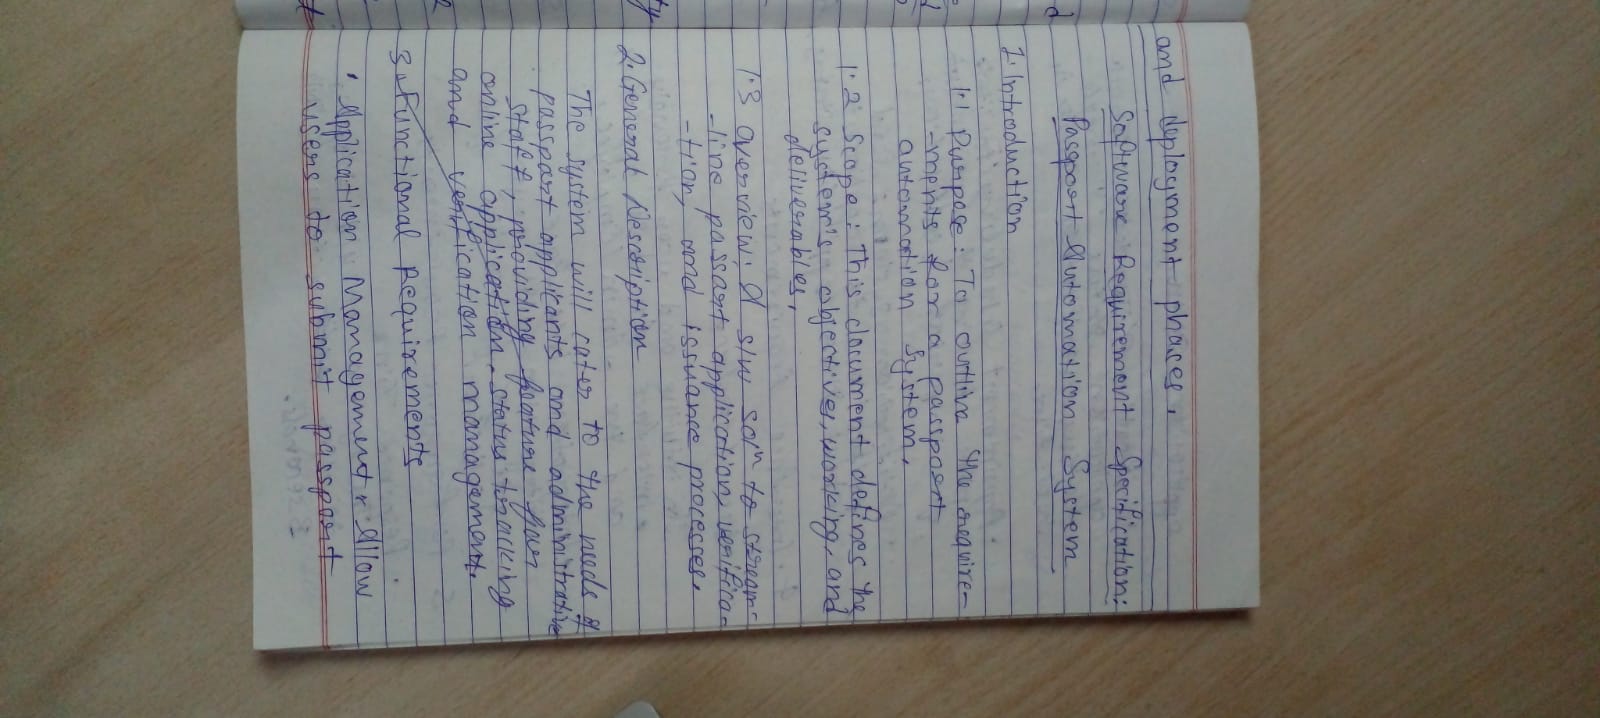 and deployment phases.
Software Requirement Specification:
Passport Automation System
1. Introduction
1.1 Purpose: To outline the require-
-ments for a passport
automation system.
1.2 Scope: This document defines the
system's objective, working, and
deliverables.
1.3 overview: A s/w solⁿ to stream-
-line passort application, verifica-
-tion, and issuance processes.
2. General Description
The system will cater to the needs of
passport applicants and adminitrative
staff, providing feature for
online application, status tracking
and verification management.
3. Functional Requirements
• Application Management: Allow
users to submit passport